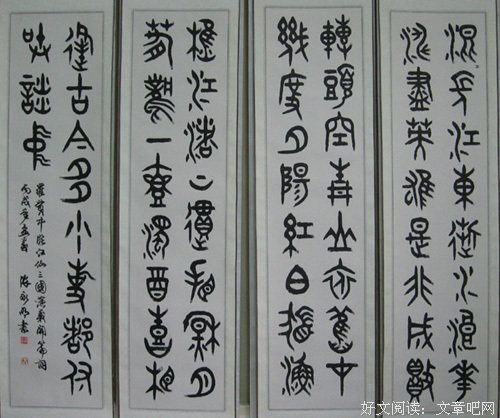 滚滚長江東逝水浪華
淘盡英雄是非成敗
轉頭空青山依舊在
幾度夕陽紅白髮漁
樵江渚上慣看秋月
春風一壺濁酒喜相
逢古今多少事都付
笑談中
羅貫中臨江仙三國演義開篇詞
好文阅读:_文章吧网